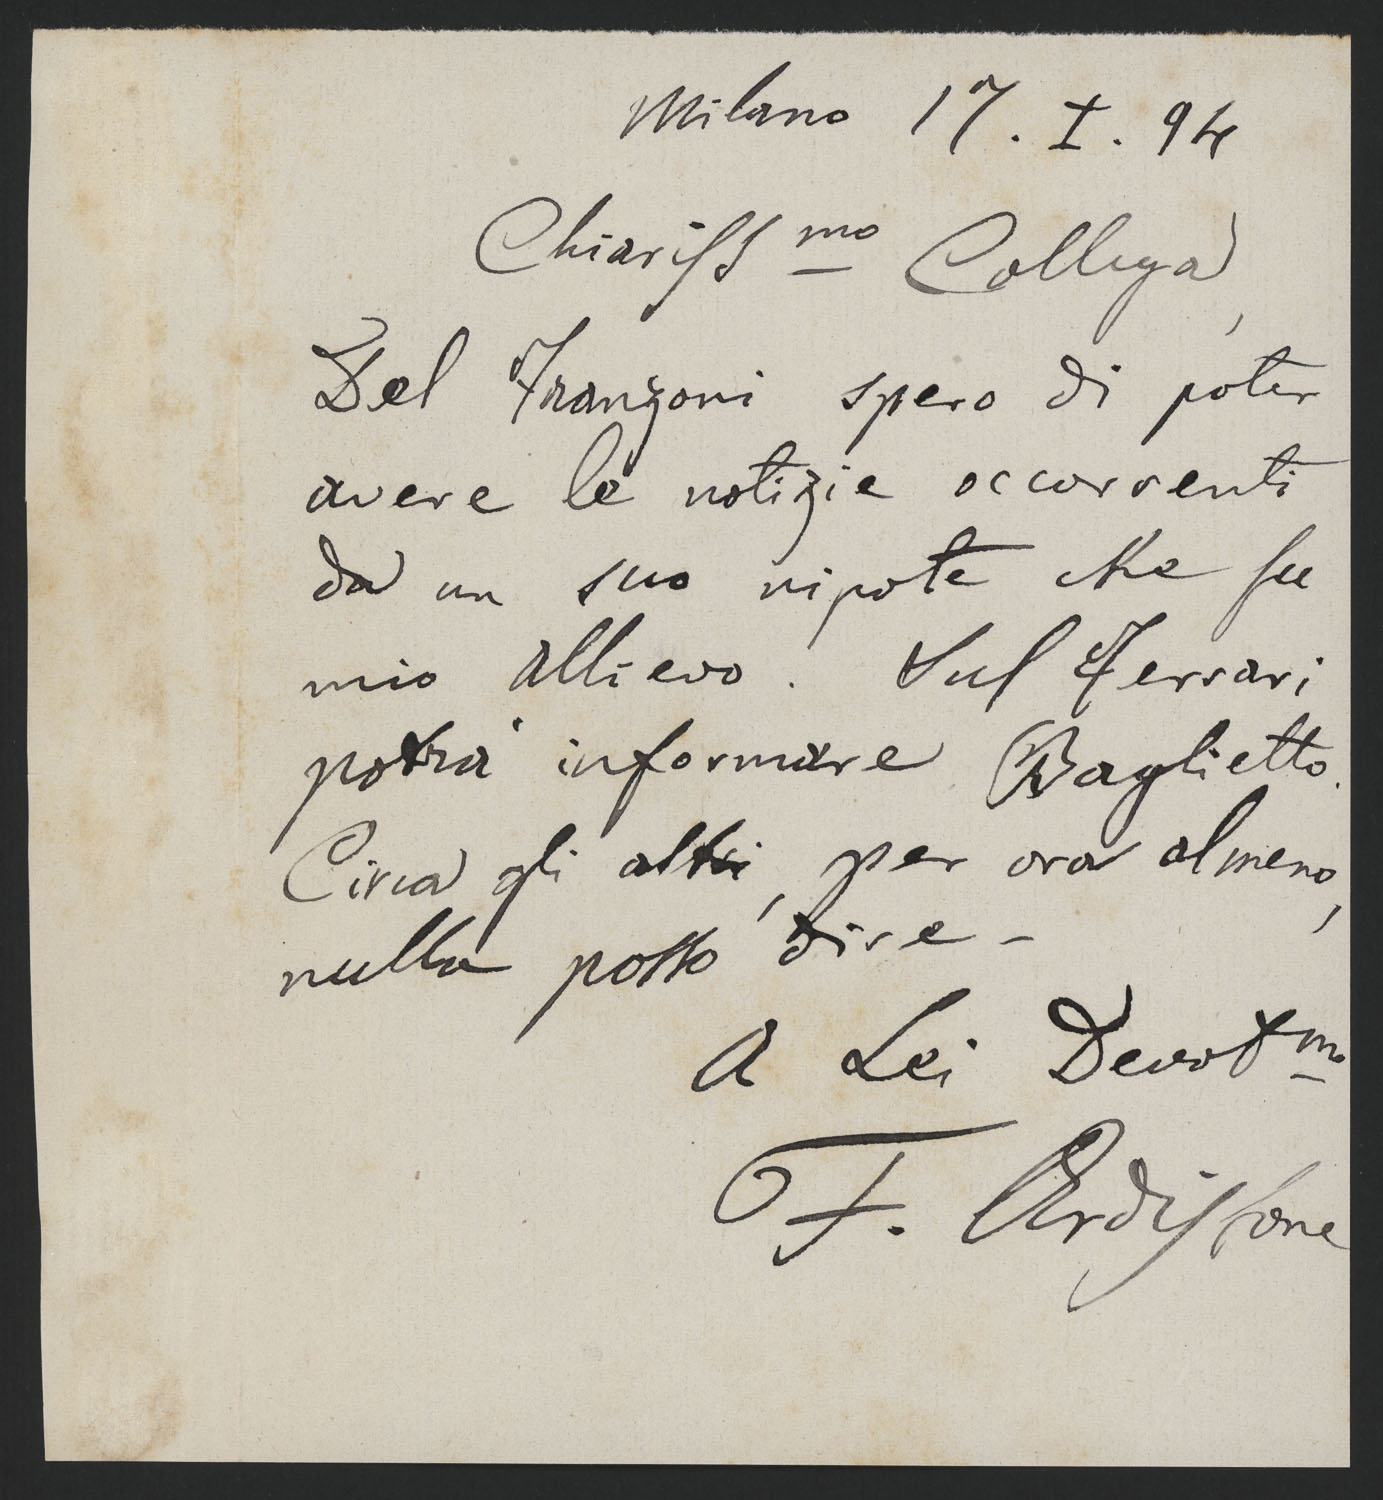 Milano 17. I. 94
Chiariss mo Collega,
Del Franzoni spero di poter
avere le notizie occorrenti
da un suo nipote che fu
mio allievo. Sul Ferrari
potrà informare Baglietto.
Circa gli altri, per ora almeno,
nulla posso dire -
A Lei Devot mo
F. Ardissone